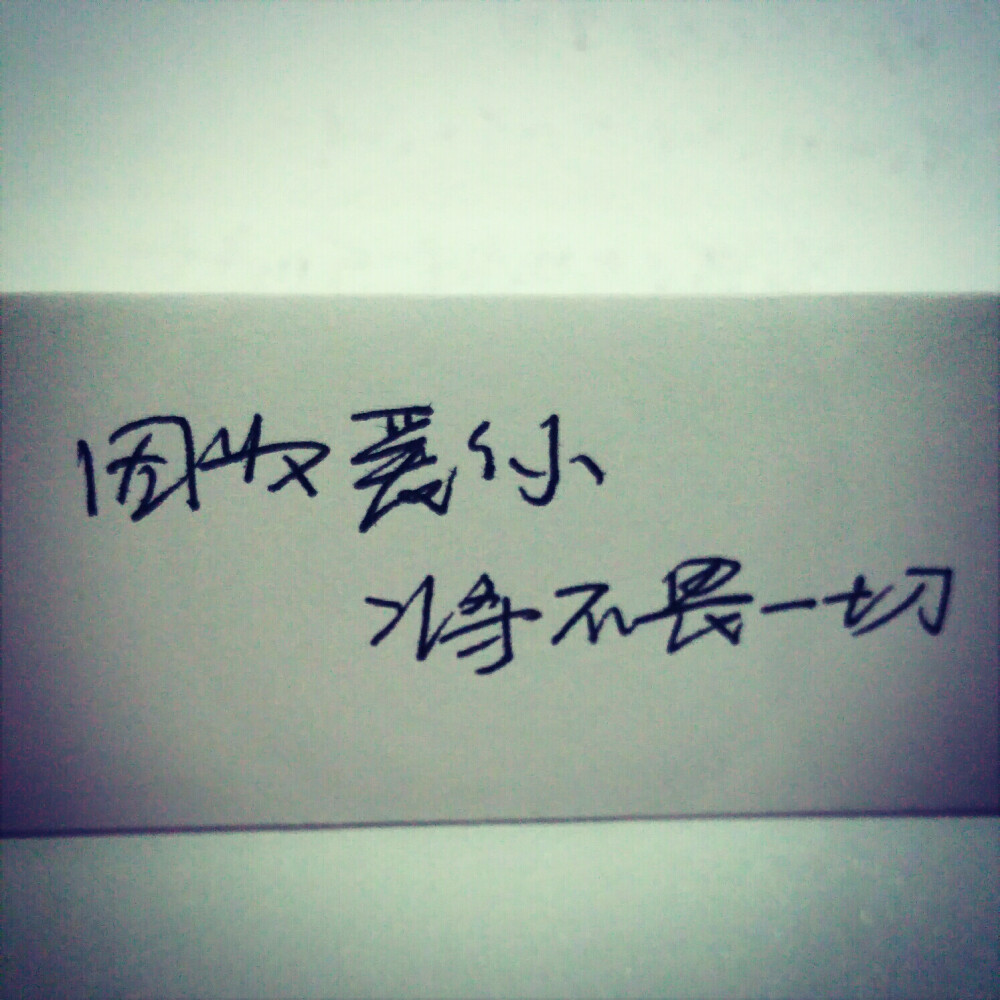 因爱你
将不畏一切